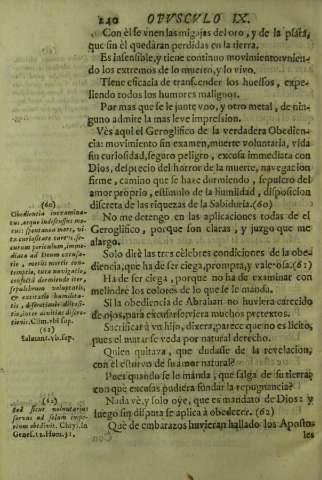 240 OPVSCVLO IX.
Con èl se vnen las migajas del oro, y de la plata,
que sin èl quedàran perdidas en la tierra.
Es insensible, y tiene continuo movimiento vnien-
do los extremos de lo muerto, y lo vivo.
Tiene eficacia de transcender los huessos, expe-
liendo todos los humores malignos.
Por mas que se le junte vno, y otro metal, de nin-
guno admite la mas leve impression.
Vès aqui el Geroglifico de la verdadera Obedien-
cia: movimiento sin examen, muerte voluntaria, vida
sin curiosidad, seguro peligro, escusa immediata con
Dios, desprecio del horror de la muerte, navegacion
firme, camino que se haze dormiendo, sepulcro del
amor proprio, estimulo de la humildad, disposicion
discreta de las riquezas de la Sabiduria. (60)
No me detengo en las aplicaciones todas de el
Geroglifico, porque son claras, y juzgo que me
alargo.
Solo dirè las tres cèlebres condiciones de la obe-
diencia, que ha de ser ciega, prompta, y valerosa. (61)
Ha de ser ciega, porque no ha de examinar con
melindre los colores de lo que se le manda.
Si la obediencia de Abrahan no huviera carecido
de ojos, para escusarse viera muchos pretextos.
Sacrificar à vn hijo, dixera, parece que no es licito,
pues el matar se veda por natural derecho.
Quien quitava, que dudasse de la revelacion,
con el estorvo de su amor natural?
Pues quando se le manda, que salga de su tierra,
con què escusas pudiera fundar la repugnancia?
Nada vè, y solo oye, que es mandato de Dios, y
luego sin disputa se aplica à obedecer. (62)
Què de embarazos huvieran hallado los Apostos
les
(60)
Obediencia inexamina-
tus, atque indiscussus mo-
tus: spontanea mors, vi-
ta curiositate carens, se-
curum periculum, imme-
diata ad Deum excusa-
tio, metus mortis con-
temptus, tuta navigatio,
confectū dormiendo iter
sepulchrum voluntatis,
& excitatio humilita-
tis
Clim. vbi sup.
(61)
Salazar. vb. sup.
(62)
Sed sicut voluntarius
servus ad solum impe-
rium obedivit. Chrys. in
Genes. 12. Hom. 31.
Con